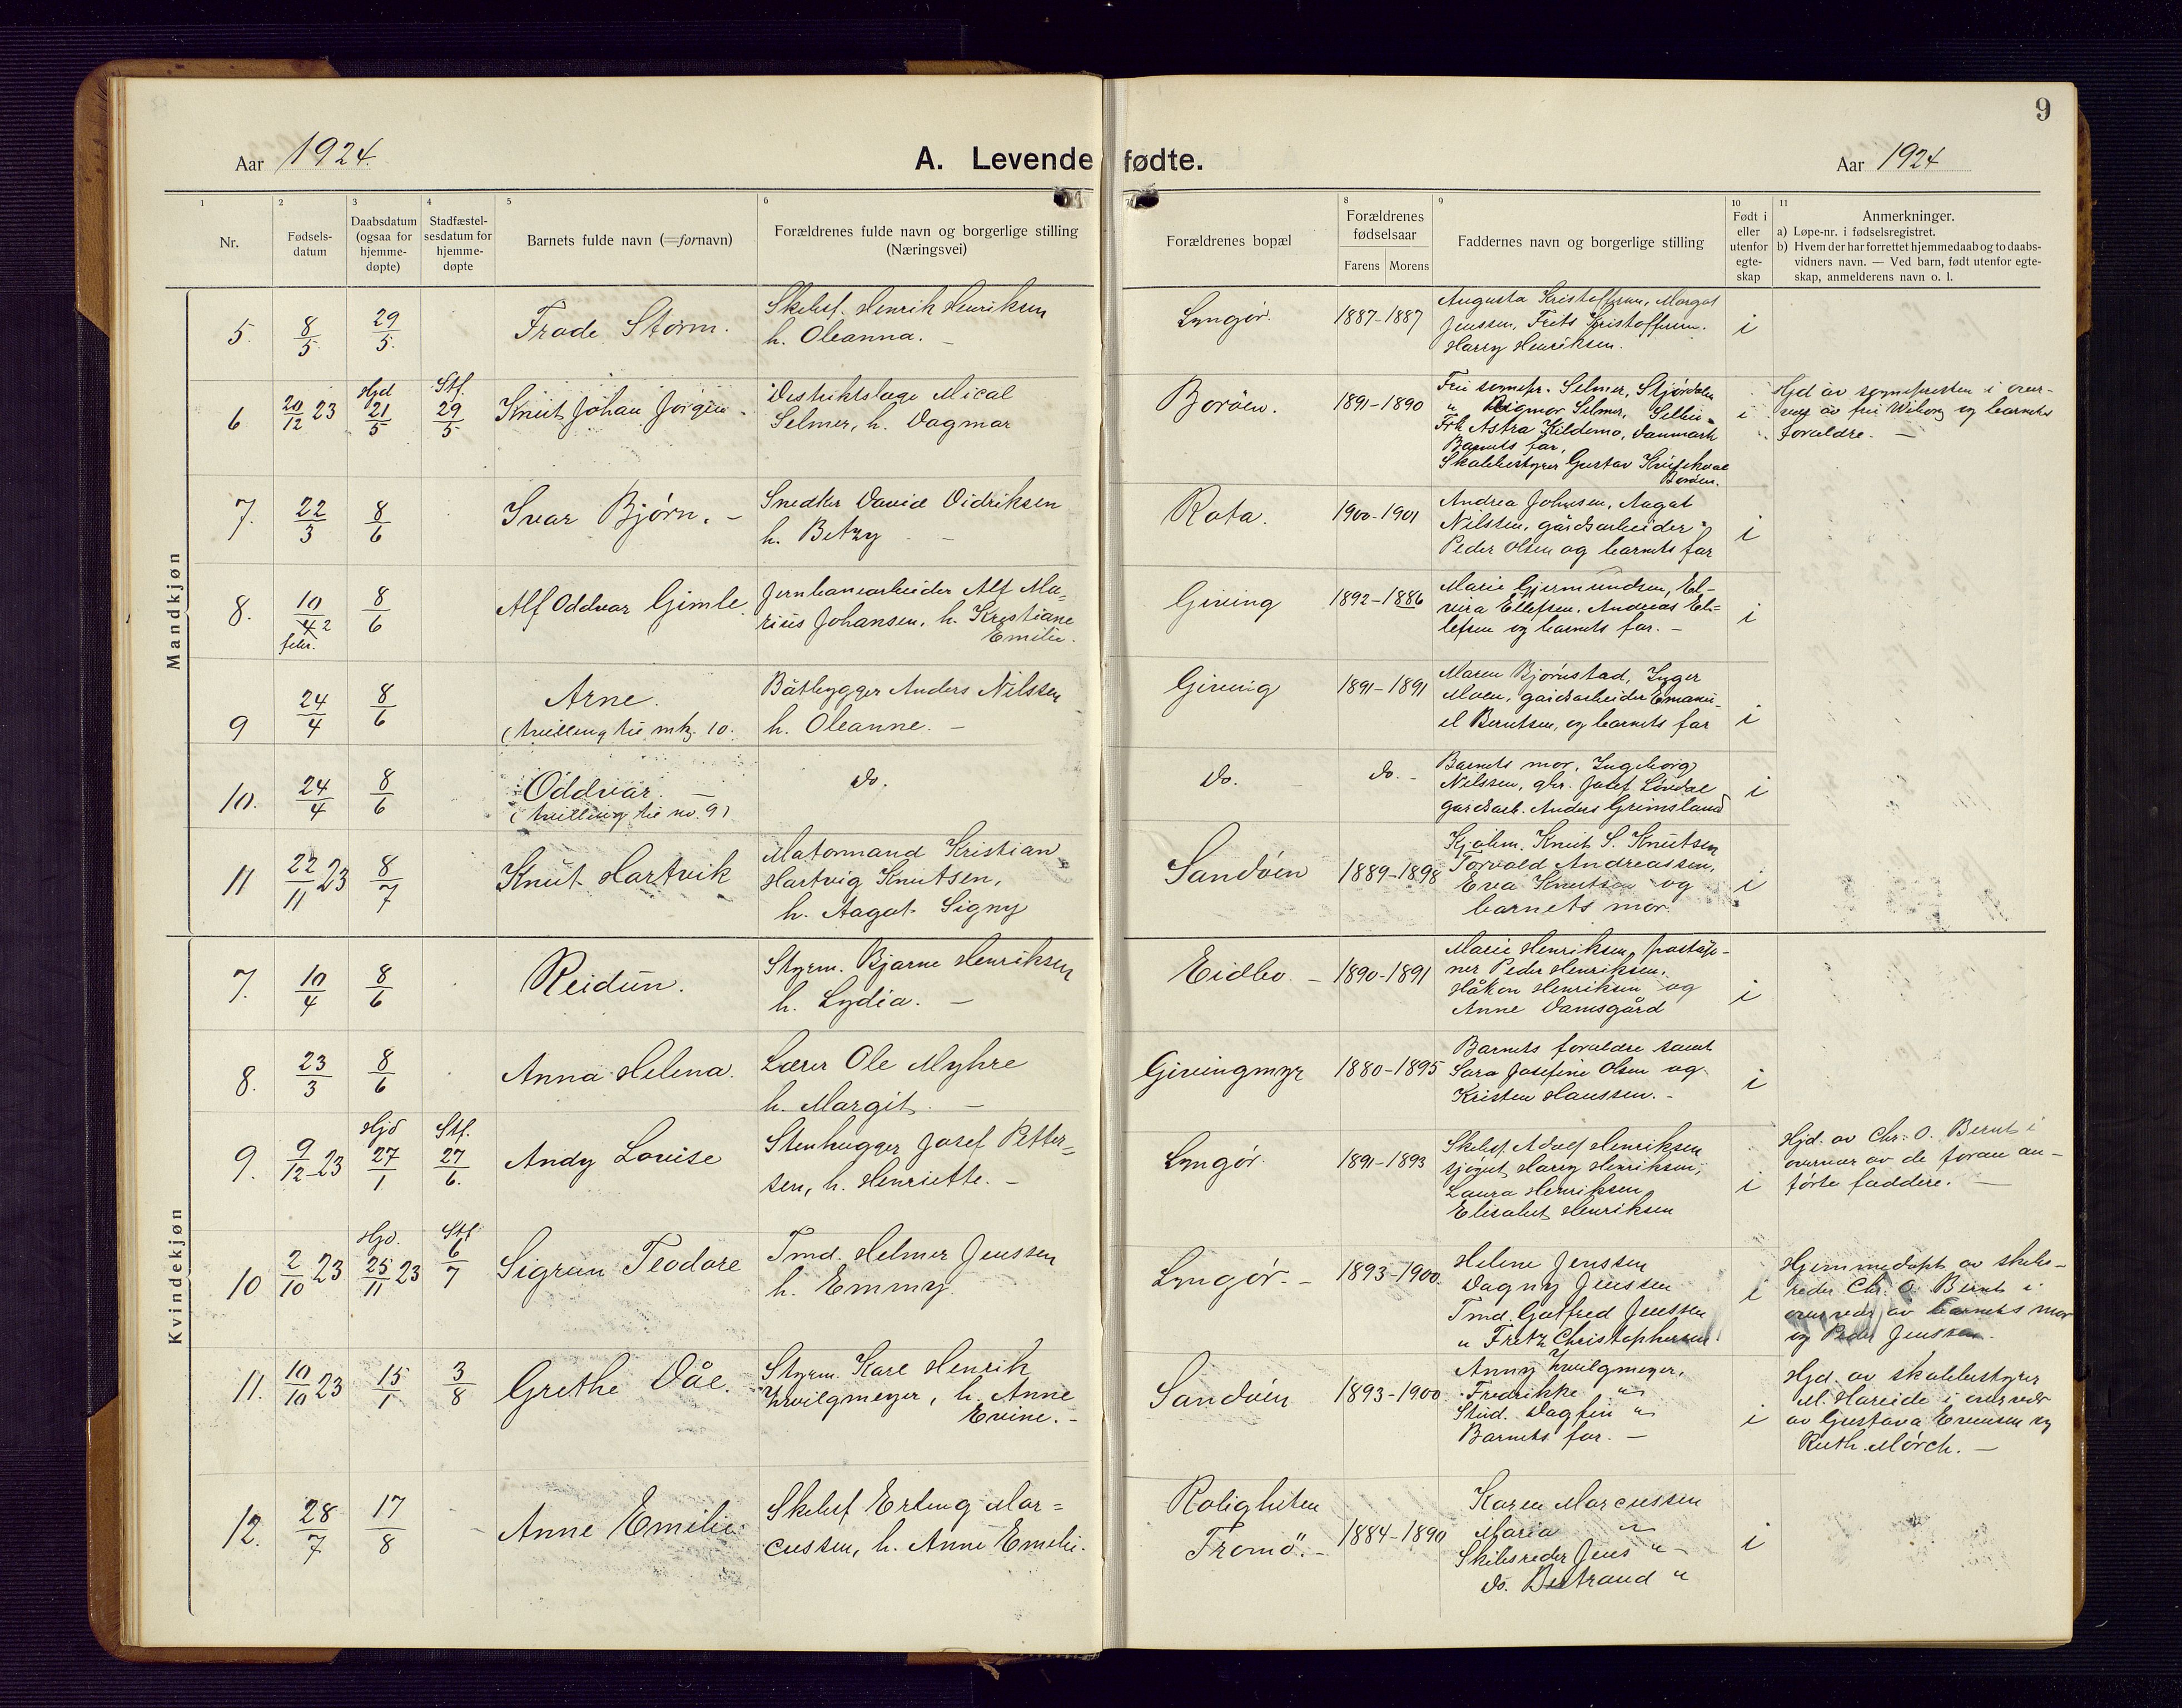 9
Aar 1924.
A. Levende fødte.
Aar 1924
1 2 3 4 5 6 7 8 9 10 11
Nr.
Fødsels-
datum
Daabsdatum
(ogsaa for
hjemme-
døpte)
Stadfæstel-
sesdatum for
hjemme-
døpte
Barnets fulde navn (=fornavn)
Forældrenes fulde navn og borgerlige stilling
(Næringsvei)
Forældrenes bopæl
Forældrenes
fødselsaar
Farens Morens
Faddernes navn og borgerlige stilling
Født i
eller
utenfor
egte-
skap
Anmerkninger.
a) Løpe-nr. i fødselsregistret.
b) Hvem der har forrettet hjemmedaab og to daabs-
vidners navn. — Ved barn, født utenfor egte-
skap, anmelderens navn o. l.
Mandkjøn
5. 8/5 29/5. Frode Storm.
Skibsf. Henrik Henriksen
h. Oleanna. –
Lyngør. 1887-1887
Augusta Kristoffersen, Margot
Jenssen, Frits Kristoffersen.
Harry Henriksen.
i
6 20/12 23 Hjd 21/5 Stf. 29/5 Knut Johan Jørgen.
Distriktslæge Mical
Selmer, h. Dagmar
Borøen. 1891-1890
Fru sognepr. Selmer, Stjørdalen
" Digmor Selmer,
Frk Astra Kildemo, Danmark
Barnets far,
Skolebestyrer Gustav
Borøen.
i
Hjd av sognepresten i over-
vær av fru Wiborg og barnets
forældre. –
7. 22/3 8/6 Ivar Bjørn. –
Snedker David Didriksen
h. Betzy –
Rota. 1900-1901
Andrea Johnsen, Aagot
Nilssen, gårdsarbeider
Peder Olsen og barnets far
i
8. 10/4 2 febr. 8/6 Alf Oddvar Gimle.
Jernbanearbeider Alf Ma-
rius Johansen, h. Kristiane
Emilie.
Giving 1892-1886
Marie Gjermundsen, El-
vira Ellefsen, Andreas El-
lefsen og barnets far. –
i
9 24/4 8/6 Arne.
(tvilling til mk. 10.
Båtbygger Anders Nilssen
h. Oleanne. –
Giving 1891-1891
Maren Bjørnstad, Inger
Moen, gardsarbeider Emanu-
el Berntsen, og barnets far
i
10. 24/4 8/6 Oddvar. –
(tvilling til no. 9)
do.
do. do. –
Barnets mor, Ingeborg
Nilssen, gbr. Josef Lindal
gardsarb. Anders Grimsland
i
11 22/11 23 8/7 Knut Hartvik
Matormand Kristian
Hartvig Knutsen,
h. Aagot Signy
Sandøen 1889-1898
Kjølem. Knut S. Knutsen
Torvald Andreassen,
Eva Knutsen og
barnets mor
i
Kvindekjøn
7. 10/4 8/6 Reidun.
Styrm. Bjarne Henriksen
h. Lydia. –
Eidbo. – 1890-1891
Marie Henriksen, poståp-
ner Peder Henriksen.
Håkon Henriksen og
Anne Damsgård
i
8. 23/3 8/6 Anna Helena.
Lærer Ole Myhre
h. Margit. –
Givingmyr 1880-1895
Barnets forældre samt
Sara Josefine Olsen og
Kristen Hanssen. –
i
9. 9/12 23 Hjd 27/1 Stf. 27/6. Andy Lovise
Stenhugger Josef Petter-
sen, h. Henriette. –
Lyngør. 1891-1893
Skibsf. Adolf Henriksen
sjøgut Harry Henriksen,
Laura Henriksen
Elisabet Henriksen
i
Hjd. av Chr. O. Bernt i
overvær av de foran an-
førte faddere. –
10 2/10 23 Hjd. 25/11 23 Stf 6/7 Sigrun Teodore
Tmd. Helmer Jenssen
h. Emmy.
Lyngør. – 1893-1900.
Helene Jenssen
Dagny Jenssen
Tmd. Gotfred Jenssen
" Fretz Christophersen.
i
Hjemmedøpt av skibs-
reder Chr. O. Bernt i
overvær av barnets mor
og Peder Jenssen.
11. 10/10 23 15/1 3/8 Grethe Dåe.
Styrm. Kåre Henrik
Zwilgmeyer, h. Anne
Evine. –
Sandøen 1893-1900
Anny Zwilgmeyer,
Fredrikke "
Stud. Dagfin "
Barnets far. –
i
Hjd. av skolebestyrer
M. Hareide i overvær
av Gustava Evensen og
Ruth Mørch. –
12. 28/7 17/8 – Anne Emilie
Skibsf Erling Mar-
cussen, h. Anne Emilie.
Roligheten
Tromö. – 1884-1890
Karen Marcussen
Maria "
Skibsreder Jens "
do. Bertrand "
i